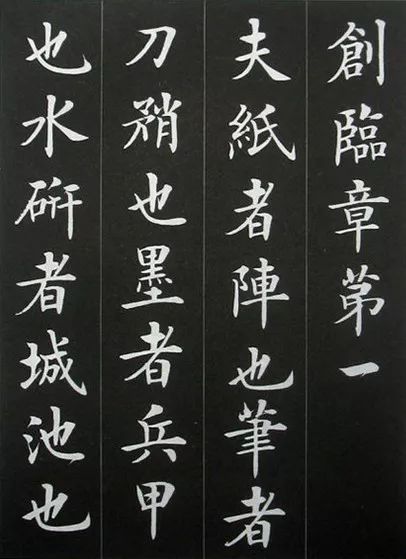 創臨章第一
夫紙者陣也筆者
刀矟也墨者兵甲
也水硏者城池也